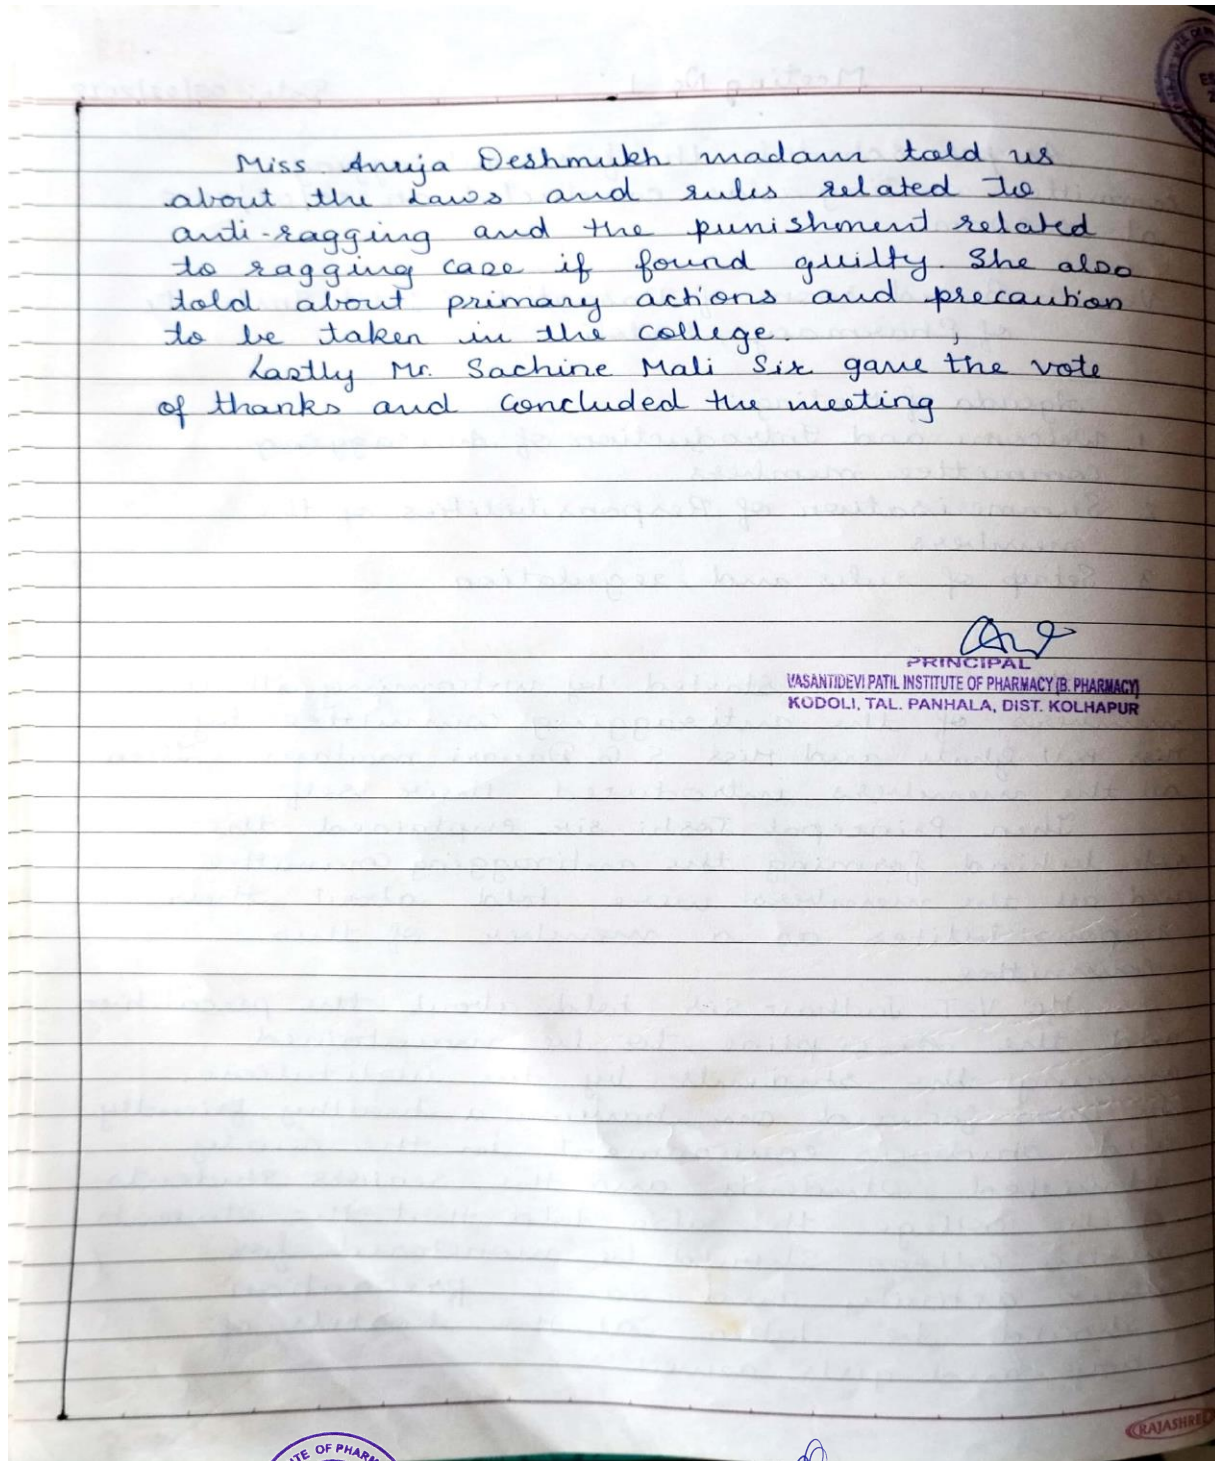 Miss Anuja Deshmukh madam told us
about the Laws and rules related to
anti-ragging and the punishment related
to ragging case if found guilty. She also
told about primary actions and precaution
to be taken in the college.
Lastly Mr. Sachine Mali Sir gave the vote
of thanks and concluded the meeting
PRINCIPAL
VASANTIDEVI PATIL INSTITUTE OF PHARMACY (B. PHARMACY)
KODOLI, TAL. PANHALA, DIST. KOLHAPUR
RAJASHREE
OF PHARM